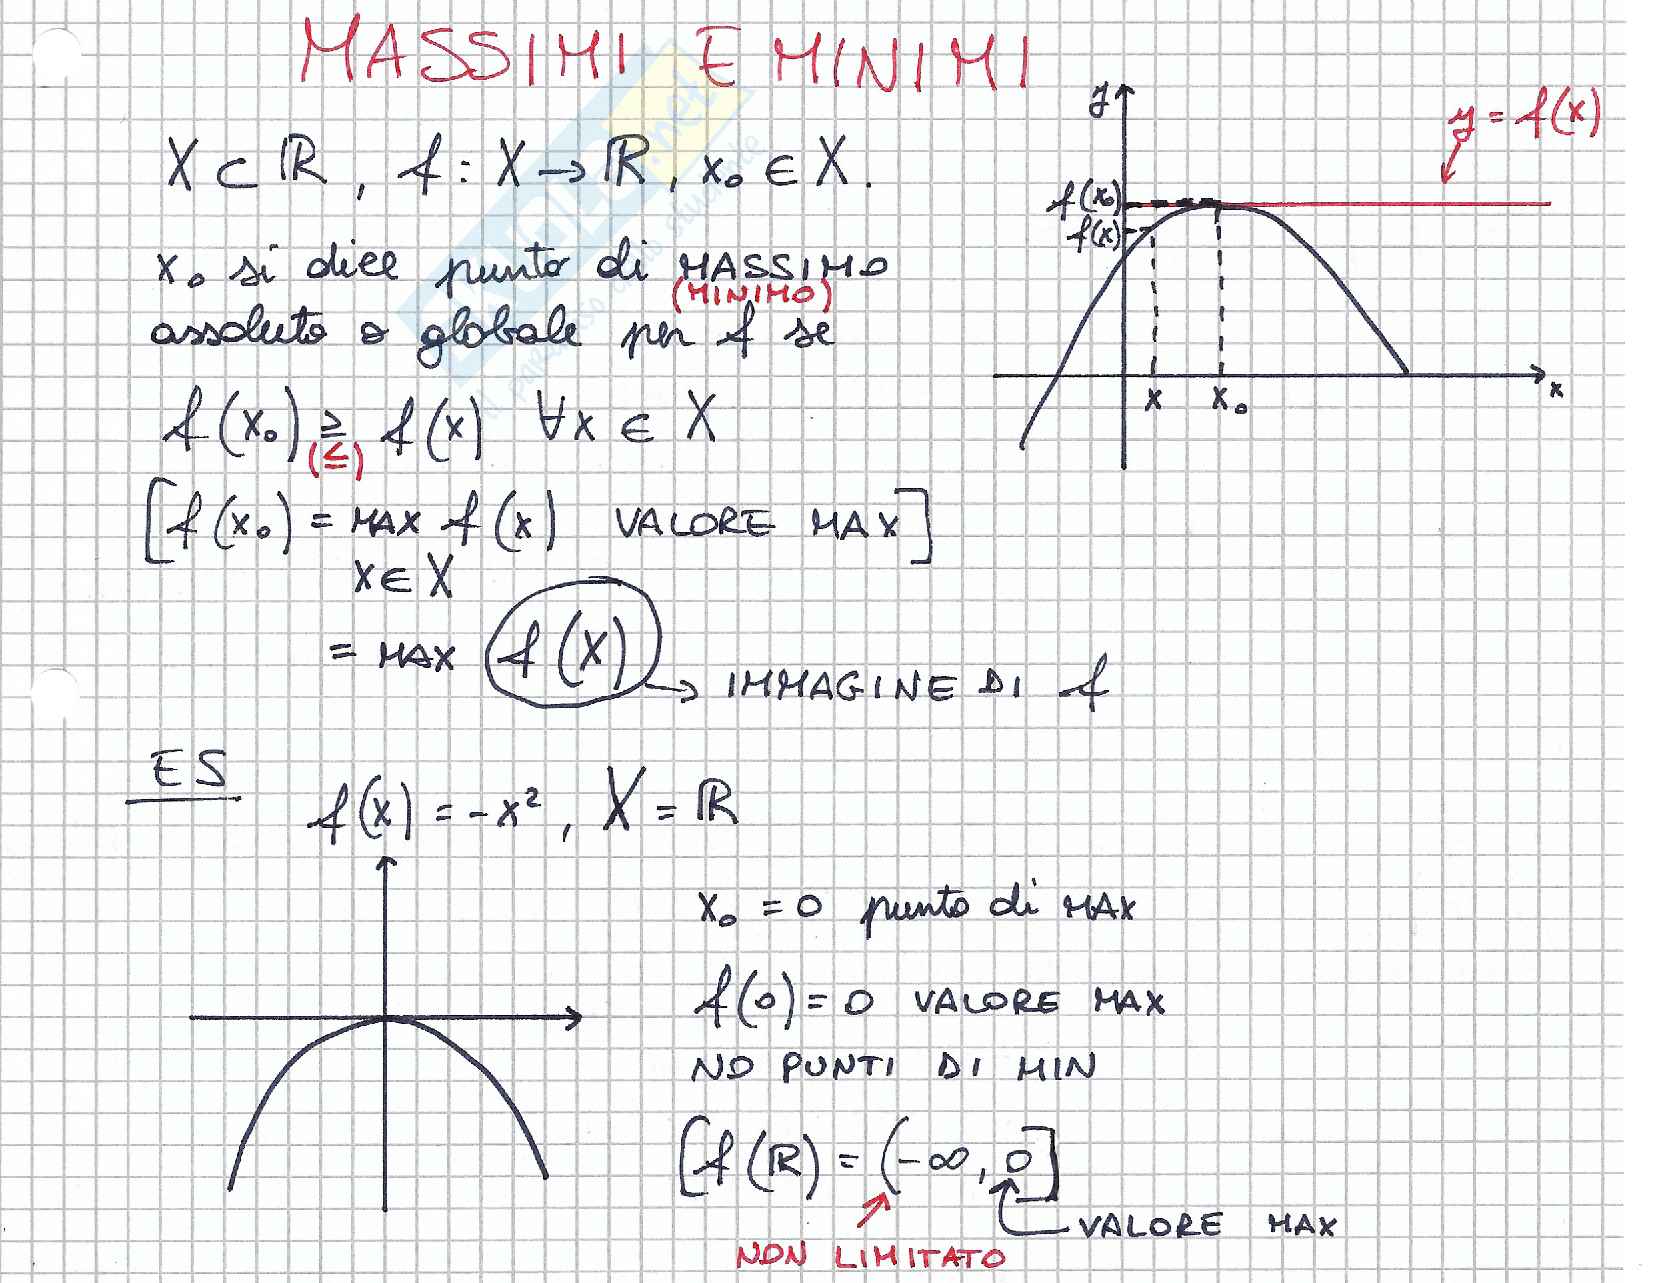 MASSIMI E MINIMI
X ⊂ ℝ, f : X → ℝ, x₀ ∈ X.
x₀ si dice punto di MASSIMO
(MINIMO)
assoluto o globale per f se
f(x₀) ≥ f(x) ∀x ∈ X
(≤)
[f(x₀) = MAX f(x) VALORE MAX]
x ∈ X
= MAX f(X) → IMMAGINE DI f
y
y = f(x)
f(x₀)
f(x)
x x₀ x
ES
f(x) = -x², X = ℝ
x₀ = 0 punto di MAX
f(0) = 0 VALORE MAX
NO PUNTI DI MIN
[f(ℝ) = (-∞, 0]
VALORE MAX
NON LIMITATO